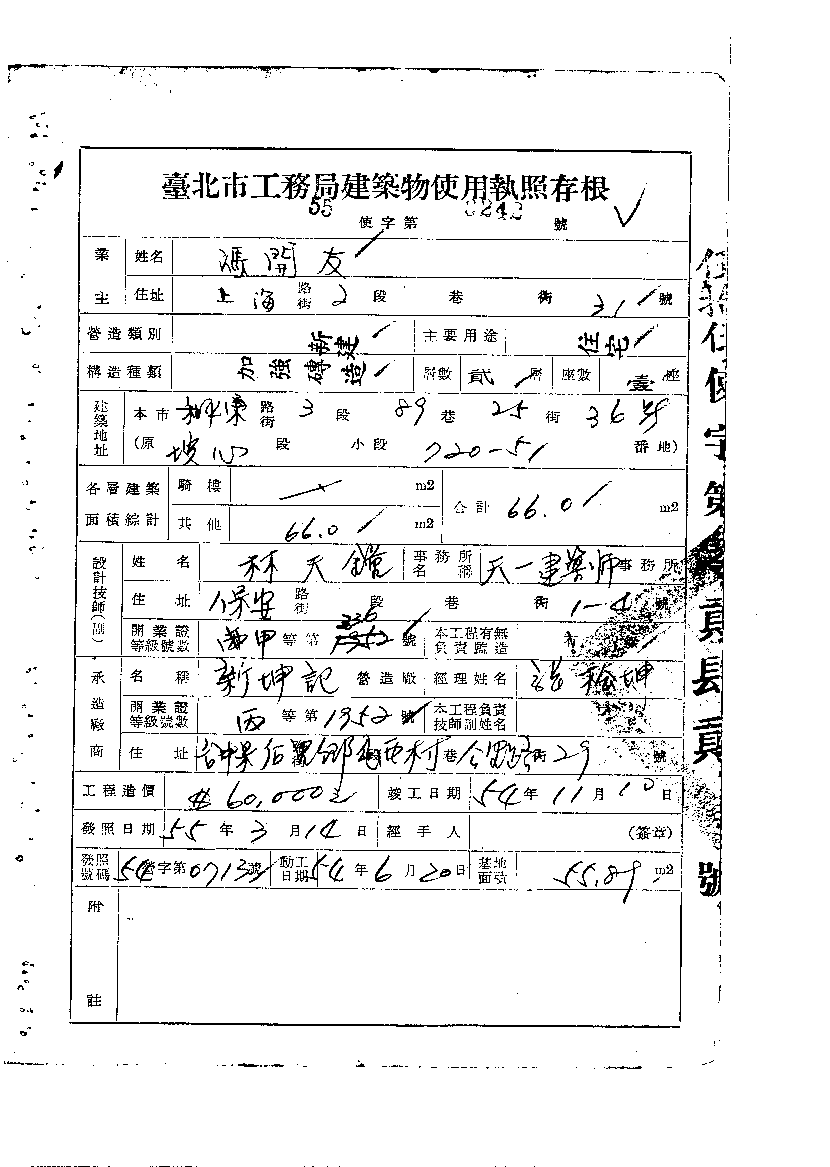 臺北市工務局建築物使用執照存根
55 使字第 0242 號
業主 姓名 馮開友
住址 上海 路街 2 段 巷 街 31 號
營造類別 新建 主要用途 住宅
構造種類 加強磚造 層數 貳 層 座數 壹 座
建築地址 本市 路街 3 段 89 巷 25 街 36 號
(原 坡心 段 小段 720-51 番地)
各層建築面積綜計 騎樓 m2 合計 66.0 m2
其他 66.0 m2
設計技師(副) 姓名 林天 事務所名稱 天一建築師 事務所
住址 保安 路街 段 巷 街 1-4 號
開業證等級號數 甲 等第 1352 336 號 本工程有無負責監造
承造廠商 名稱 新坤記 營造廠 經理姓名 坤
開業證等級號數 丙 等第 1352 號 本工程負責技師副姓名
住址 台中 鄉 西村 巷 街 29 號
工程造價 60,000元 竣工日期 54 年 11 月 10 日
發照日期 55 年 3 月 14 日 經手人 (簽章)
發照號碼 54 字第 0713 號 動工日期 54 年 6 月 20 日 基地面積 55.89 m2
附註
使字第
號